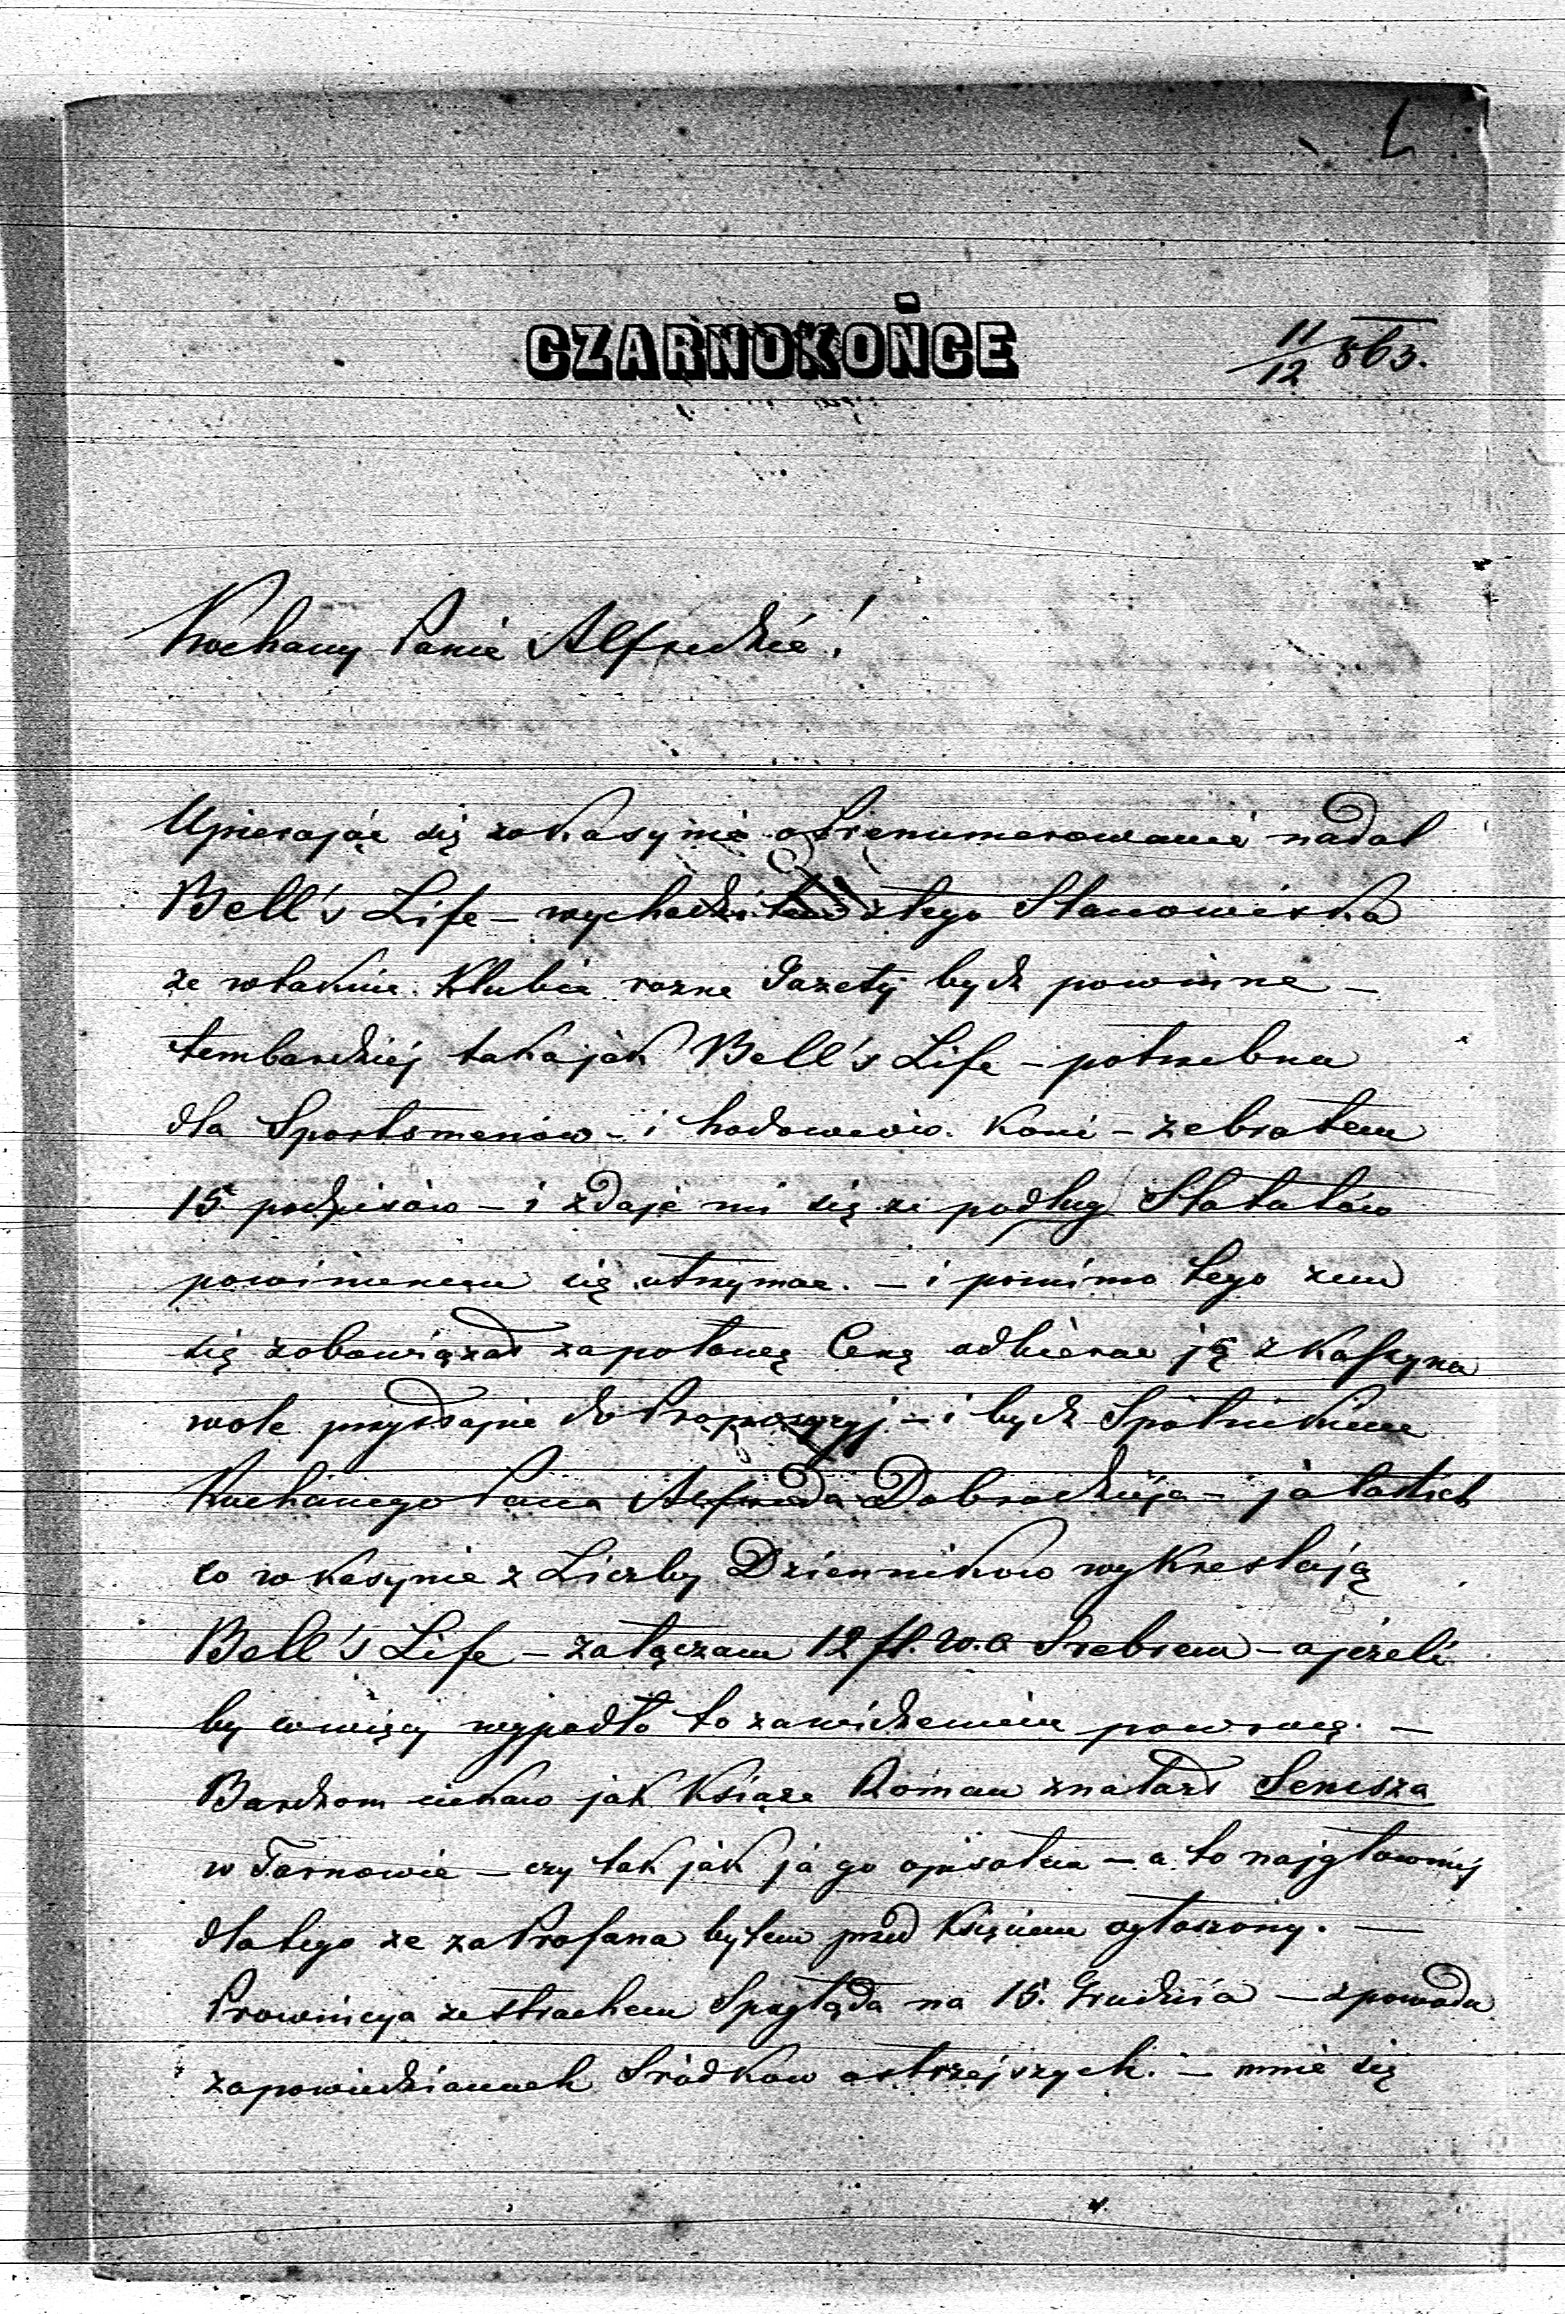 CZARNOKOŃCE
11/12 863.
Kochany Panie Alfredzie!
Upierając się w Kasynie o Prenumerowanie nadal
Bell's Life – wychodziłem z tego Stanowiska
ze w takim Klubie rozne Gazety bydz powinne –
tembardziéj taka jak Bell's Life – potrzebna
dla Sportsmenów – i hodowców Koni – zebrałem
15 podpisów – i zdaje mi się ze podług Statutów
powinienem się utrzymac. – i pomimo tego zem
się zobowiązał za połowę Ceny odbierac ją z Kassyna
wole przystaje do Propozycyj – i bydz Spólnikiem
Kochanego Pana Alfreda Dobrodzieja –
co w Kasynie z Liczby Dzienników wykreslają
Bell's Life – załączam 12 fl. w.a Srebrem – a jezeli
by co więcy wypadło to za widzeniem powrocę. –
Bardzom ciekaw jak Książe Roman znalazł
w Tarnowie – czy tak jak ja go opisałem – a to najgłowniej
dlatego ze za Profana byłem przed Księciem ogłoszony. –
Prowincya ze strachem Spogląda na 15. Grudnia – z powodu
zapowiedzianych Srodkow ostrzejszych. – mnie się